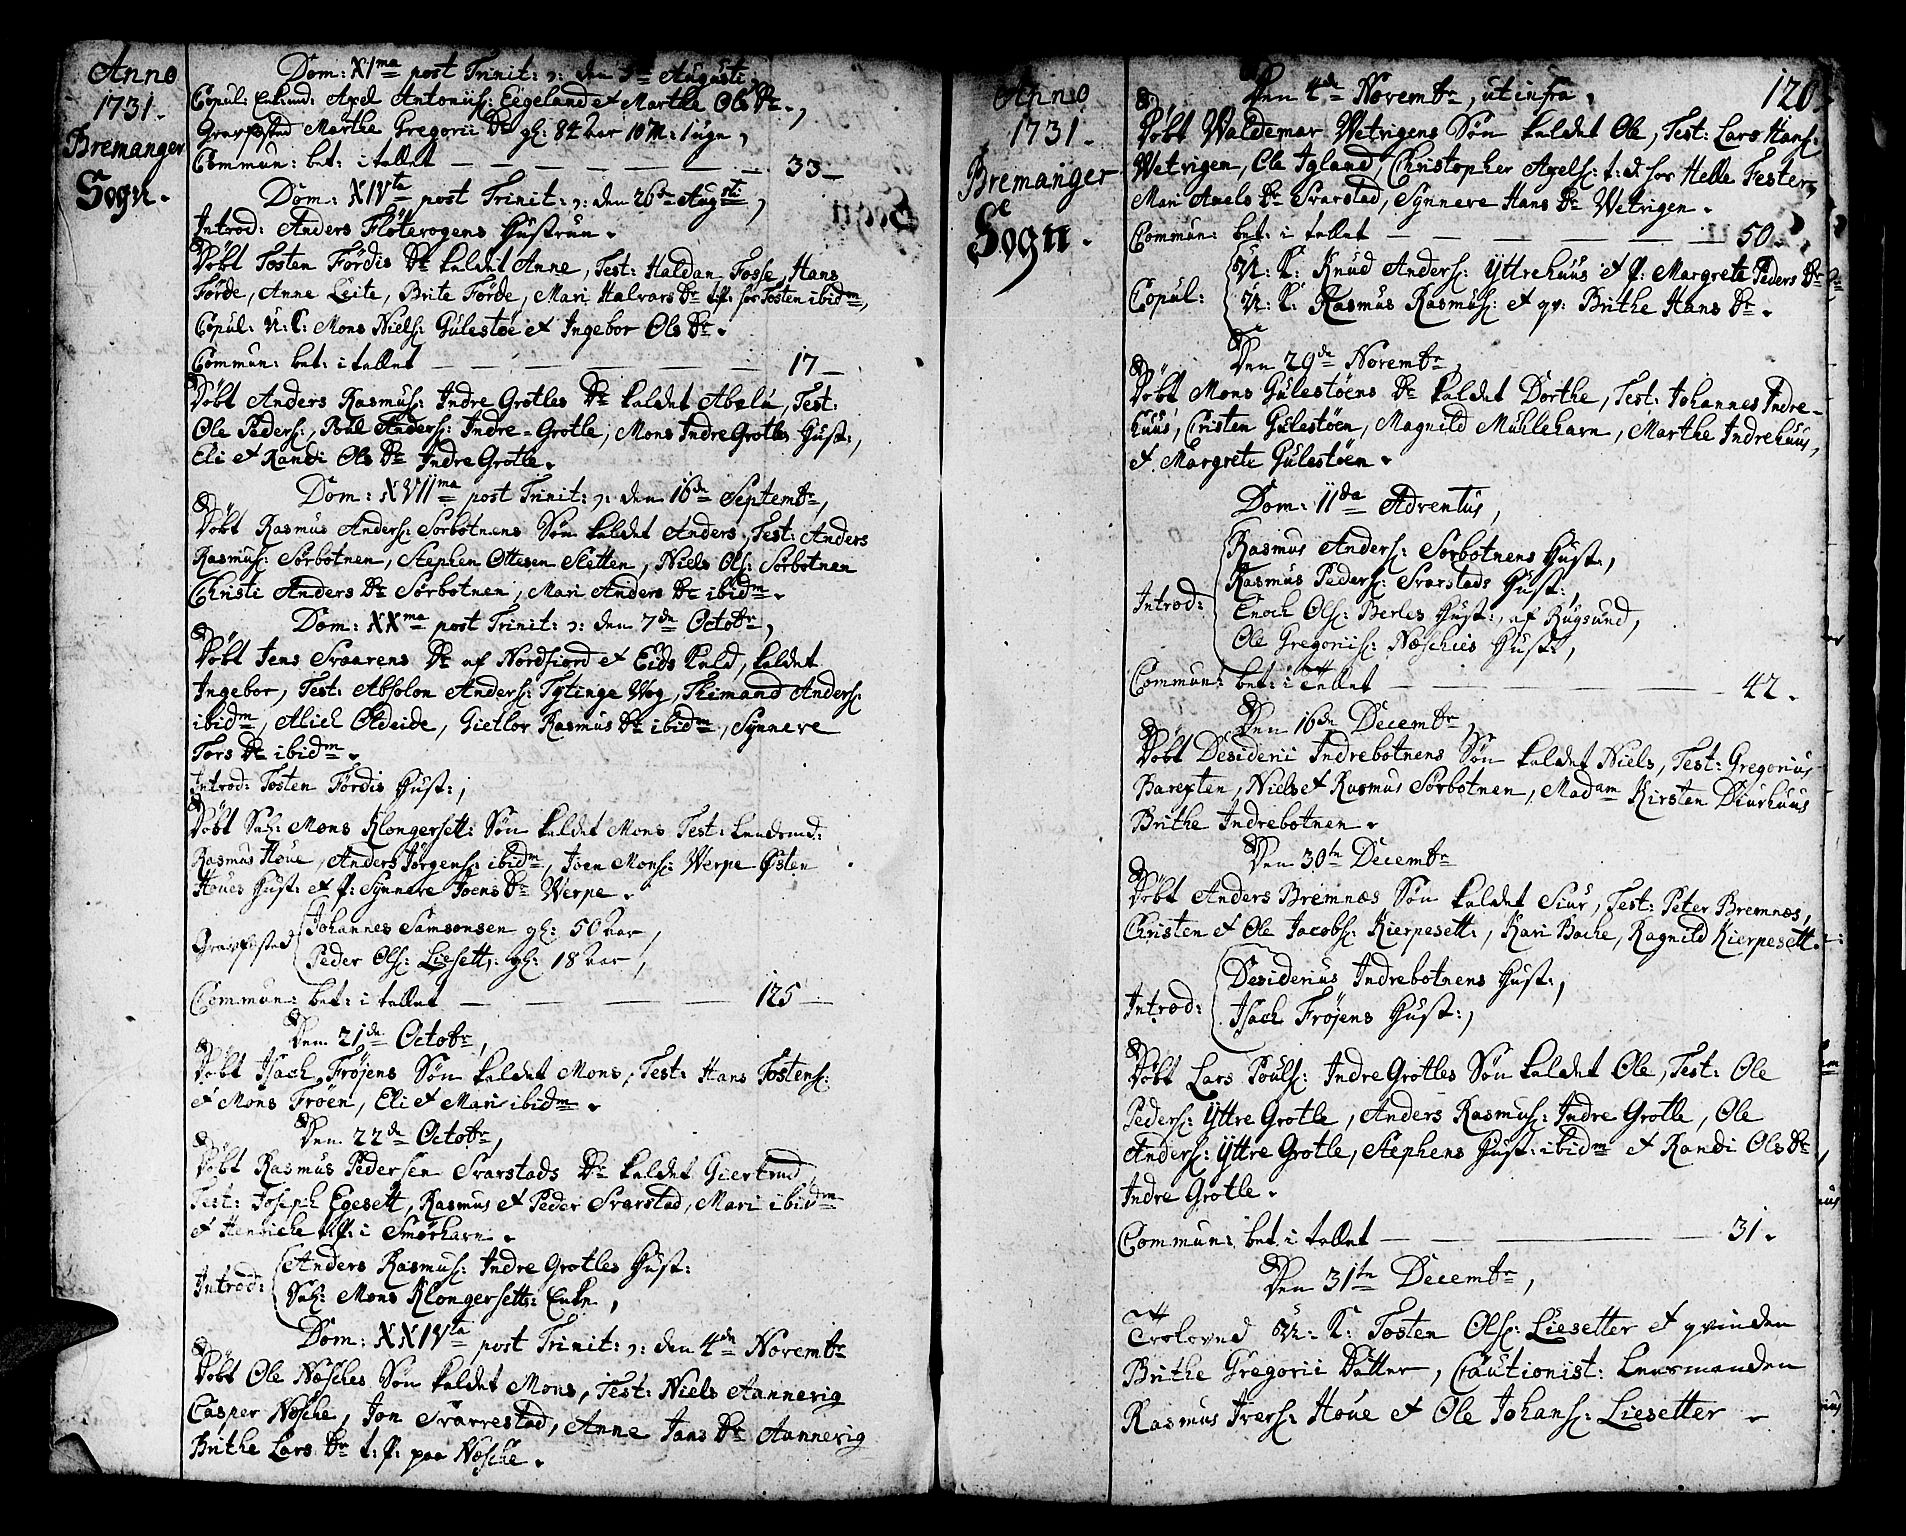 Anno
1731.
Bremanger
Sogn.
Dom: XIma post Trinit: ɔ: den 5te Augusti,
Copul: Enkemd: Axel Antoniis: Eegeland et Marthe Ols Dr.,
Graffæsted Marthe Gregorii Dr gl: 84 aar 10 M: 1 uge,
Commun: bet: i tallet — 33 —
Dom: XIVta post Trinit: ɔ: den 26de Augsti,
Introd: Anders Flöterogens Hustrue.
Döbt Tosten Fördis Dr kaldet Anne, Test: Haldan Fosse, Hans
Förde, Anne Leite, Brite Förde, Mari Halvars Dr t.p: for Tosten ibidm,
Copul: U: C: Mons Niels: Gülestöe et Ingebor Ols Dr.
Commun: bet: i tallet — 17 —
Döbt Anders Rasmus: Indre Grotles Dr kaldet Abelu, Test:
Ole Peders:, Poul Anders: Indre-Grotle, Mons Indre Grotles Hust:,
Eli et Randi Ols Dr Indre Grotle.
Dom: XVIIma post Trinit: ɔ: den 16de Septembr,
Döbt Rasmus Anders: Sörbotnens Sön kaldet Anders, Test: Anders
Rasmus: Sörbotnen, Stephen Ottesen Sletten, Niels Ols: Sörbotnen
Christi Anders Dr Sörbotnen, Mari Anders Dr ibidm.
Dom: XXma post Trinit: ɔ: den 7de Octobr,
Döbt Jens Svaarens Dr af Nordfiord et Eids kald, kaldet
Ingebor, Test: Absolon Anders: Tytinge Vog, Thimand Anders:
ibidm, Aliel Oldeide, Gietlor Rasmus Dr ibidm, Synnere
Tors Dr ibidm.
Introd: Tosten Fördis Hust:,
Döbt Sal: Mons Klongersett: Sön kaldet Mons Test: Lendsmd:
Rasmus Houe, Anders Jörgens: ibidm, Joen Mons: Verpe Östen
Houes Hust: et p: Synnere Joens Dr Verpe.
Graffæsted Johannes Samsonsen gl: 50 aar,
Peder Ols: Liesett: gl: 18 aar,
Commun: bet: i tallet — 125 —
Den 21de Octobr,
Döbt Isach Fröjens Sön kaldet Mons, Test: Hans Tostens:
et Mons Fröen, Eli et Mari ibidm.
Den 22de Octobr,
Döbt Rasmus Pedersen Svarstads Dr kaldet Giertrud,
Test: Joseph Egesett, Rasmus et Peder Svarstad, Mari ibidm
et Henriche t.p: i Smörhavn.
Introd: Anders Rasmus: Indre Grotles Hust:
Sal: Mons Klongersetts: Enke,
Dom: XXIVta post Trinit: ɔ: den 4de Novembr
Döbt Ole Nösches Sön kaldet Mons, Test: Niels Aannevig
Casper Nösche, Jon Svarrestad, Anne Jans Dr Aannevig
Brithe Lars Dr t: p: paa Nösche.
Anno
1731.
Bremanger
Sogn.
120.
Den 4de Novembr, ut infra,
Döbt Waldemar Vetrigens Sön kaldet Ole, Test: Lars Hans:
Vetrigen, Ole Igland, Christopher Axels: t: d: for Helle Fester,
Mari Auels Dr Svarstad, Synnere Hans Dr Vetrigen.
Commun: bet: i tallet — 50.
Copul: U: K: Knud Anders: Yttrehuus et p: Margrete Peders Dr
U: K: Rasmus Rasmus: et qv: Brithe Hans Dr.
Den 29de Novembr,
Döbt Mons Gülestöens Dr kaldet Dorthe, Test: Johannes Indre-
huus, Cristen Gülestöen, Magnild Mühlehavn, Marthe Indrehuus,
et Margrete Gülestöen.
Dom: IIda Adventus,
Introd: Rasmus Anders: Sörbotnens Hust:,
Rasmus Peders: Svarstads Hust:,
Enoch Ols: Berles Hust:, af Rugsund,
Ole Gregoriis: Nöschies Hust:,
Commun: bet: i tallet — 42.
Den 16de Decembr,
Döbt Desiderii Indrebotnens Sön kaldet Niels, Test: Gregorius
Barexten, Niels et Rasmus Sörbotnen, Madam Kirsten Diurhuus
Brithe Indrebotnen.
Den 30te Decembr
Döbt Anders Bremnæs Sön kaldet Siur, Test: Peter Bremnæs,
Christen et Ole Jacobs: Kierpesett:, Kari Bache, Ragnild Kierpesett.
Introd: Desiderius Indrebotnens Hust:,
Isach Fröjens Hust:,
Döbt Lars Pouls: Indre Grotles Sön kaldet Ole, Test: Ole
Peders: Yttre Grotle, Anders Rasmus: Indre Grotle, Ole
Anders: Yttre Grotle, Stephens Hust: ibidm et Randi Ols Dr
Indre Grotle.
Commun: bet: i tallet — 31.
Den 31te Decembr,
Troloved U: K: Tosten Ols: Liesetter et qvinden
Brithe Gregorii Datter, Cautionist: Lensmanden
Rasmus Ivers: Houe et Ole Johans: Liesetter.